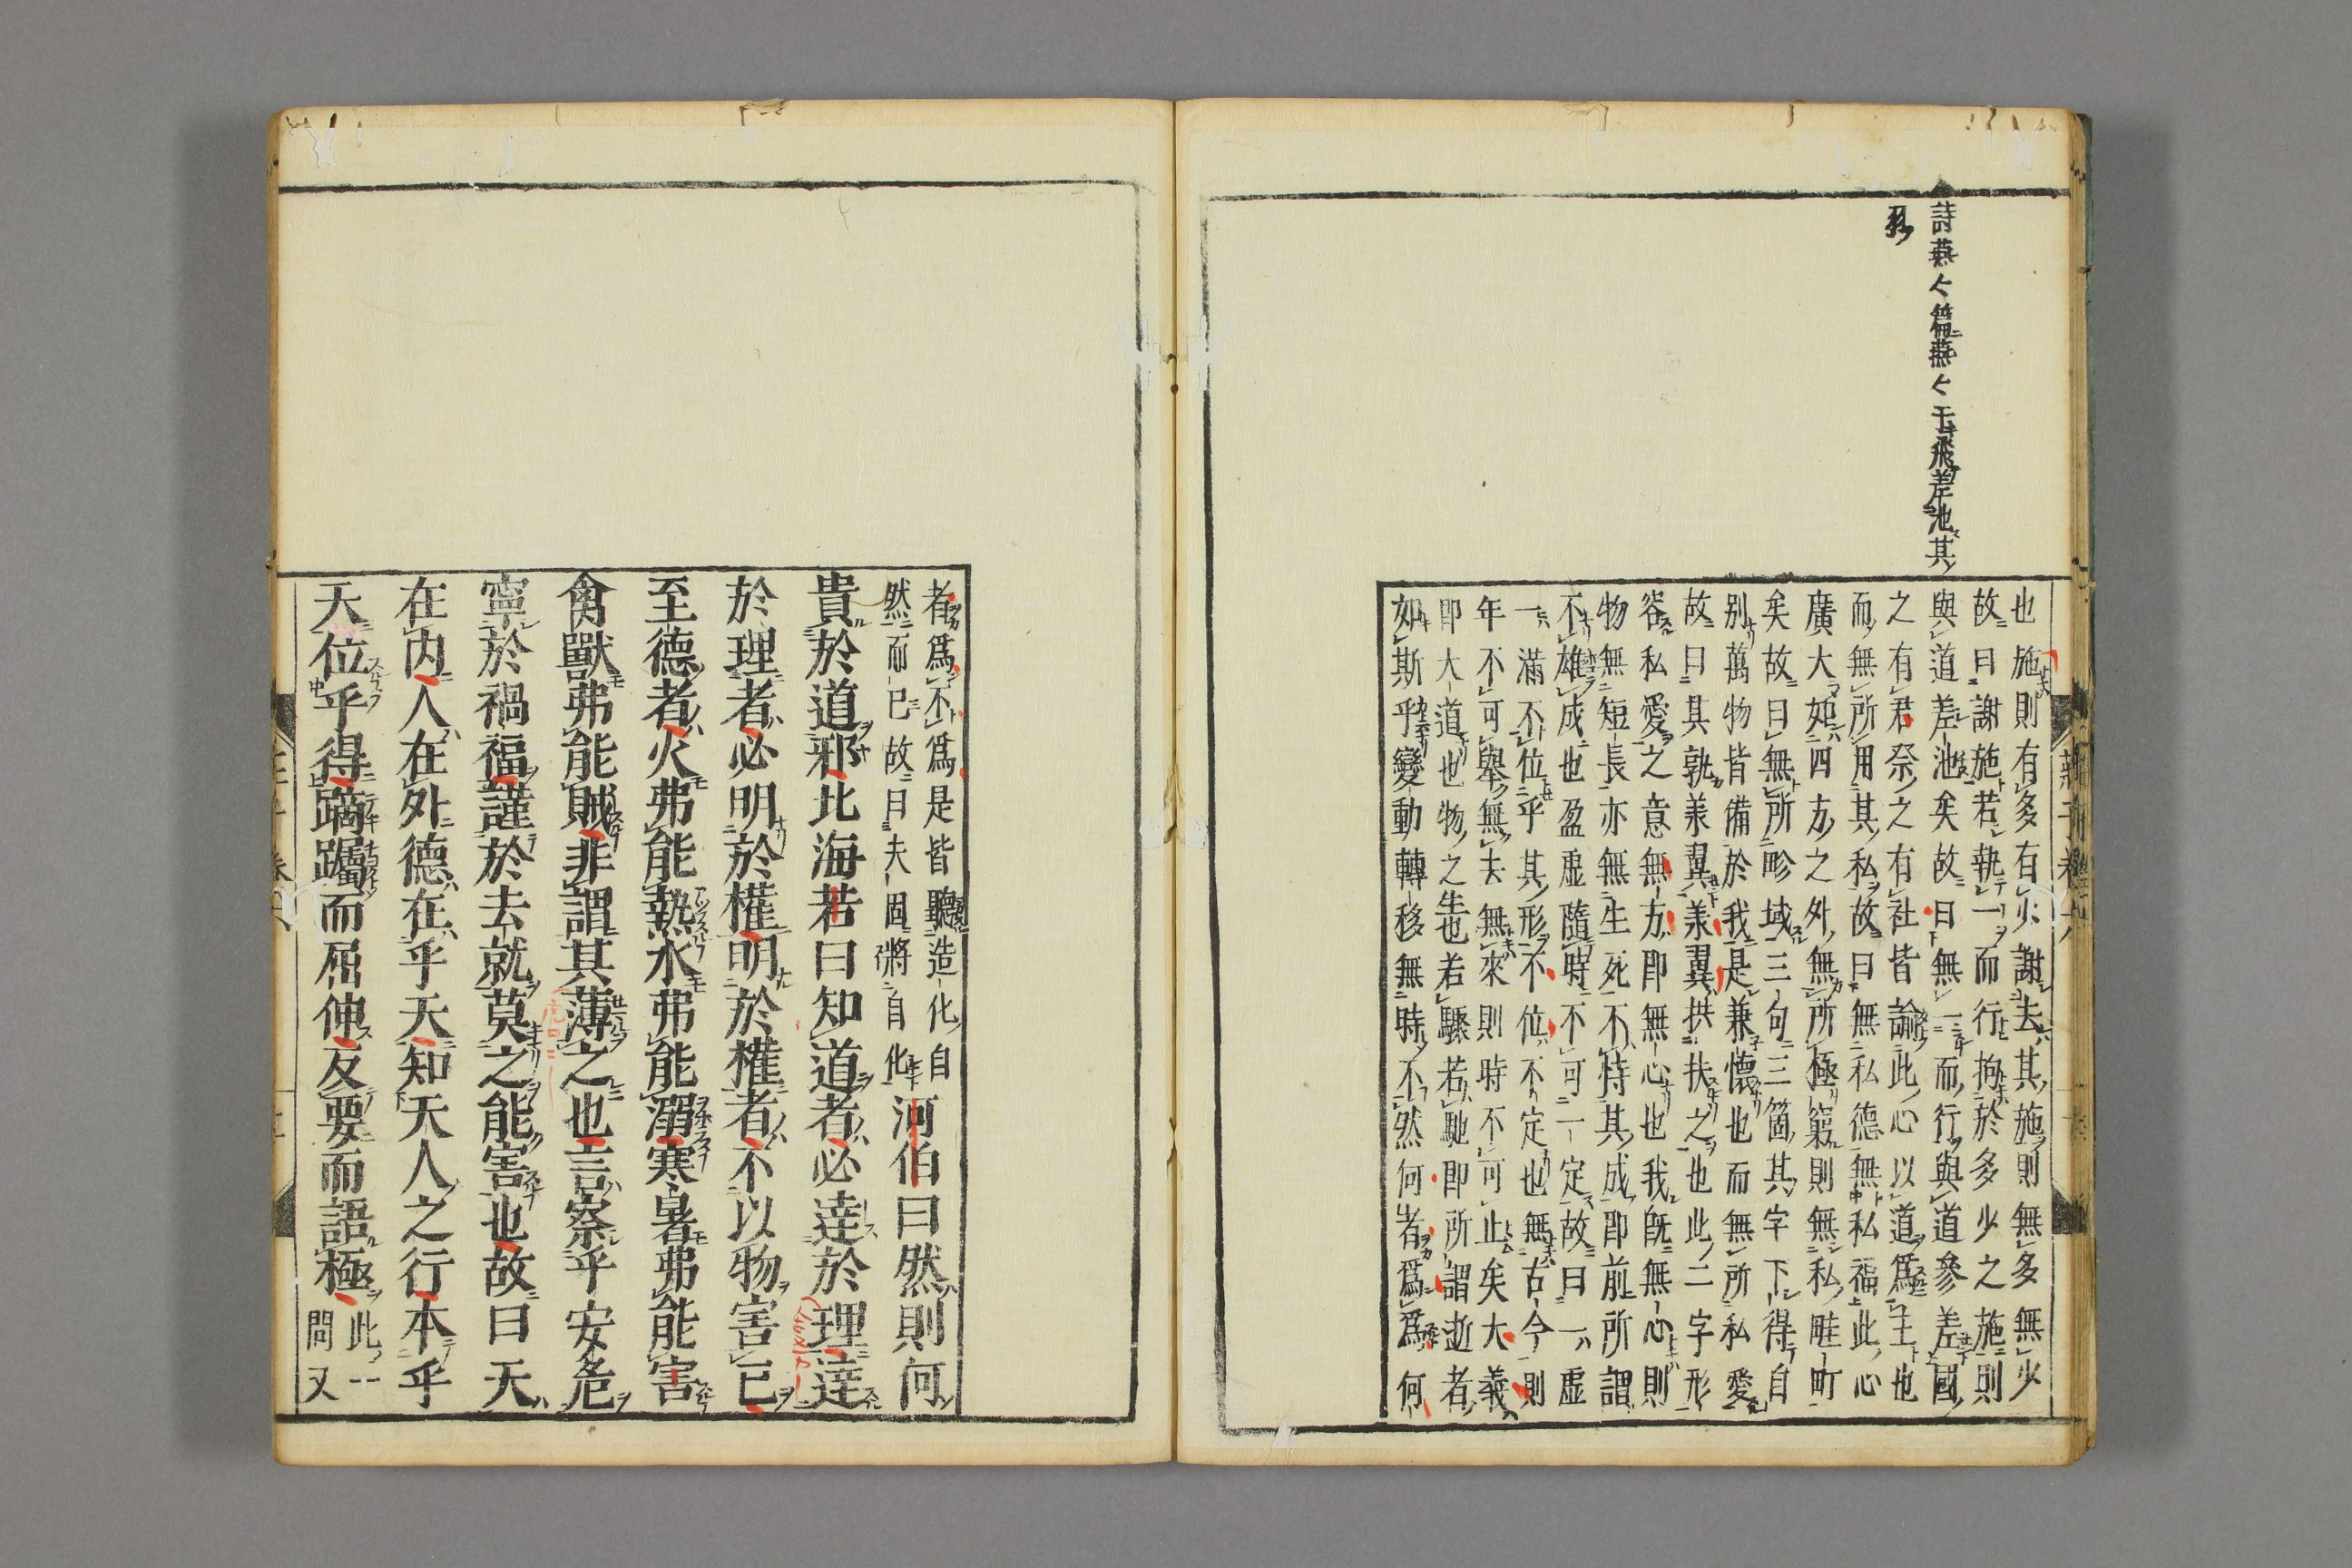 詩燕〻篇燕〻于飛差池其
羽
也施則有多有少謝去其施則無多無少
故曰謝施若執一而行拘於多少之施則
與道差池矣故曰無一而行與道參差國
之有君祭之有社皆諭此心以道爲主也
而無所用其私故曰無私德無私福此心
廣大如四方之外無所極窮則無私畦町
矣故曰無所畛域三句三箇其字下得自
别萬物皆備於我是兼懷也而無所私愛
故曰其孰羕翼羕翼拱扶之也此二字形
容私愛之意無方即無心也我旣無心則
物無短長亦無生死不恃其成即前所謂
不雄成也盈虛隨時不可一定故曰一虛
一滿不位乎其形不位不定也無古今則
年不可舉無去無來則時不可止矣大義
即大道也物之生也若驟若馳即所謂逝者
如斯乎變動轉移無時不然何者爲爲何
者爲不爲是皆聽造化自
然而已故曰夫固將自化河伯曰然則何
貴於道邪北海若曰知道者必逹於理逹
於理者必明於權明於權者不以物害已
至德者火弗能熱水弗能溺寒暑弗能害
禽獸弗能賊非謂其薄之也言察乎安危
寧於禍福謹於去就莫之能害也故曰天
在内人在外德在乎天知天人之行本乎
天位乎得蹢躅而屈伸反要而語極此一
問又